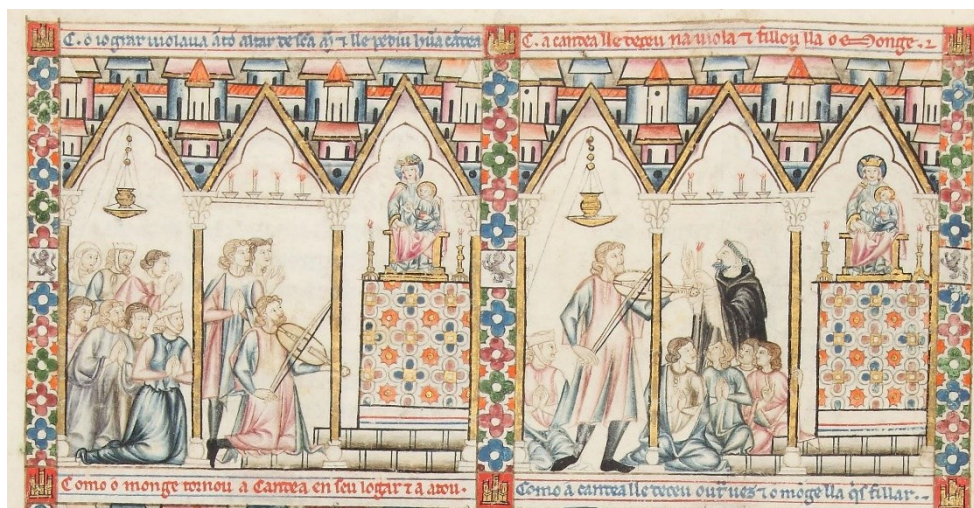 C. o iograr uiolaua ãto altar de sc̃a m̃ ⁊ lle pediu hũa cãdea
C. a candea lle deceu na uiola ⁊ fillou lla o Monge.
Como o monge tornou a Candea en seu logar ⁊ a atou.
Como a candea lle deceu outr̃ ues ⁊ o mõge lla q̃s fillar.